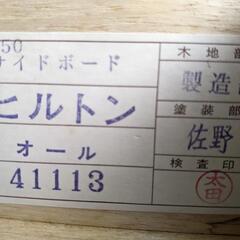 50
イドボード
ヒルトン
オール
41113
木地部
製造
塗装部
佐野
検査印
太田